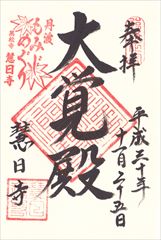 奉拝
平成三十年
十一月二十五日
大覚殿
慧日寺
丹波
もみじ
めぐり
慧日寺